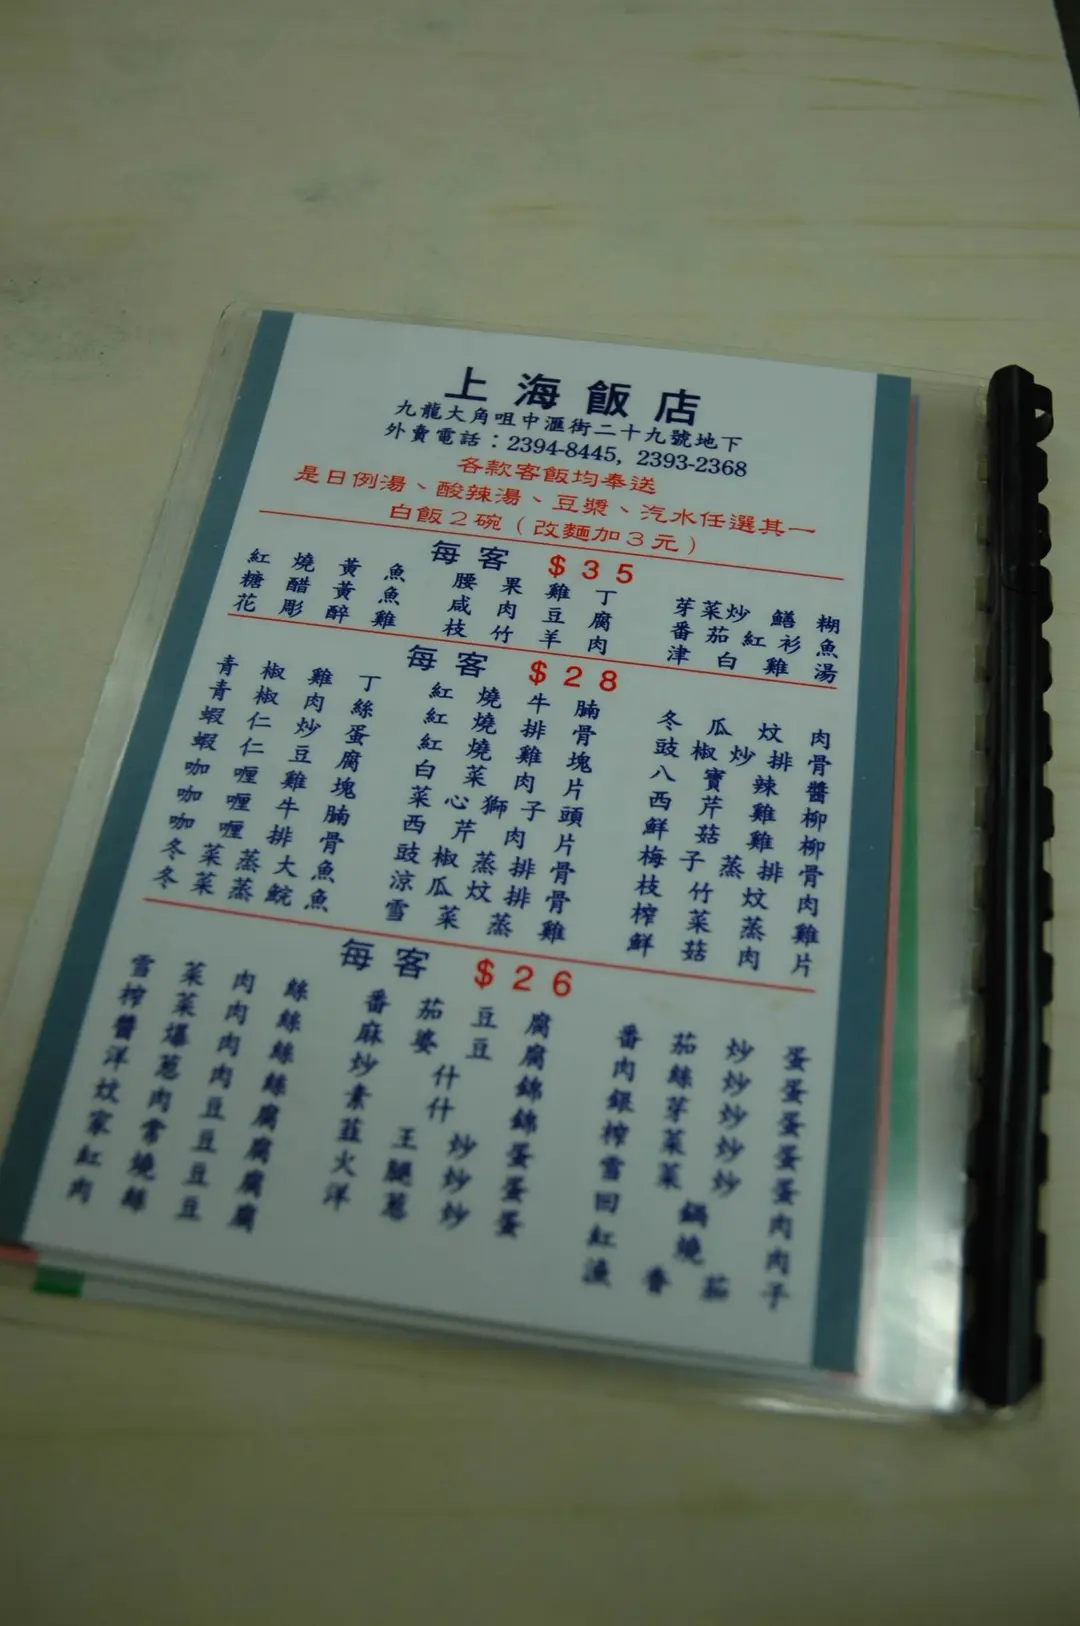 上海飯店
九龍大角咀中滙街二十九號地下
外賣電話：2394-8445, 2393-2368
各款客飯均奉送
是日例湯、酸辣湯、豆漿、汽水任選其一
白飯2碗（改麵加3元）
每客 $35
紅燒黃魚 腰果雞丁 芽菜炒鱔糊
糖醋黃魚 咸肉豆腐 番茄紅衫魚
花彫醉雞 枝竹羊肉 津白雞湯
每客 $28
青椒雞丁 紅燒牛腩 冬瓜炆肉
青椒肉絲 紅燒排骨 豉椒炒排骨
蝦仁炒蛋 紅燒雞塊 八寶辣醬
蝦仁豆腐 白菜肉片 西芹雞柳
咖喱雞塊 菜心獅子頭 鮮菇雞柳
咖喱牛腩 西芹肉片 梅子蒸排骨
咖喱排骨 豉椒蒸排骨 枝竹炆肉
冬菜蒸大魚 涼瓜炆排骨 榨菜蒸雞
冬菜蒸鯇魚 雪菜蒸雞 鮮菇肉片
每客 $26
雪菜肉絲 番茄豆腐 番茄炒蛋
榨菜肉絲 麻婆豆腐 肉絲炒蛋
醬爆肉絲 炒什錦 銀芽炒蛋
洋葱肉絲 素什錦 榨菜炒蛋
炆肉豆腐 韮王炒蛋 雪菜炒蛋
家常豆腐 火腿炒蛋 回鍋肉
紅燒豆腐 洋葱炒蛋 紅燒肉
肉絲豆腐 漁香茄子